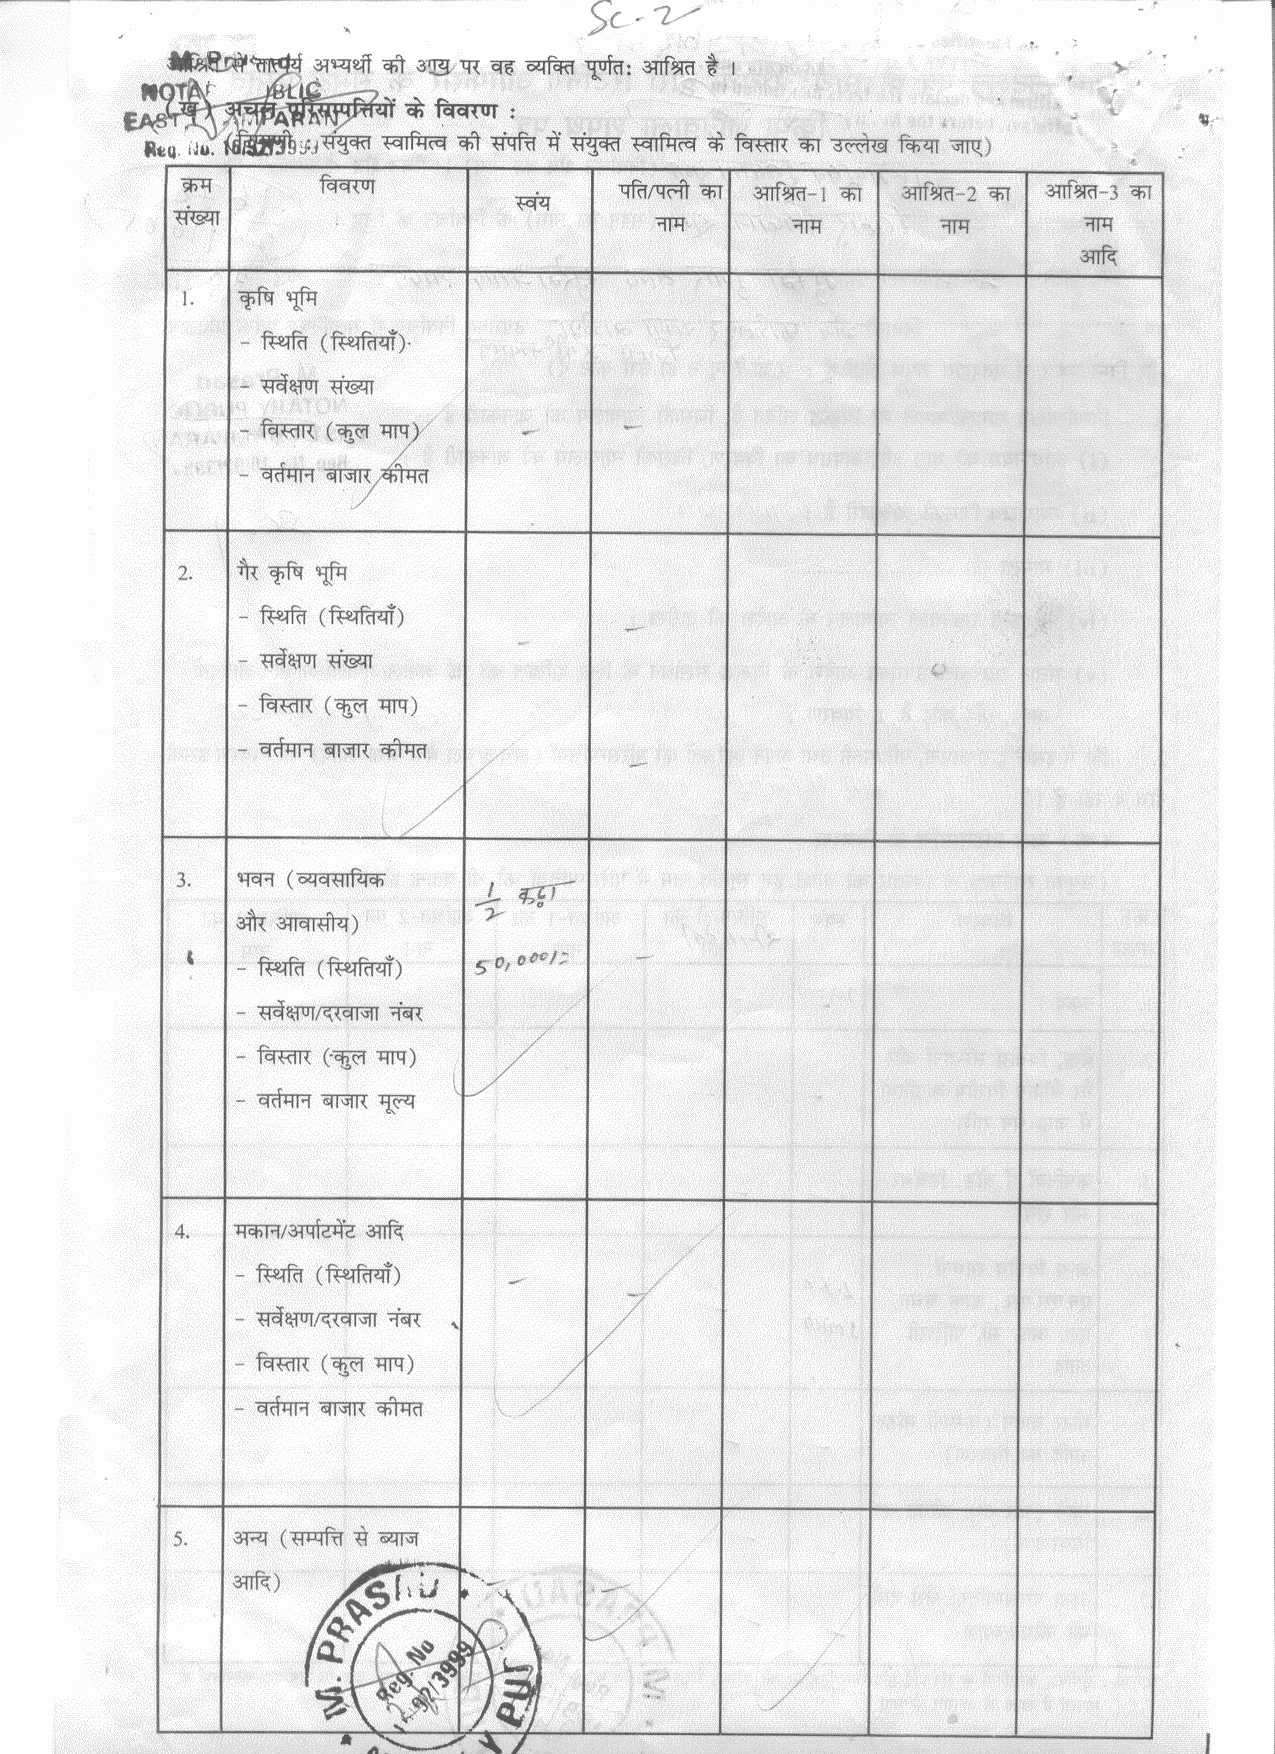 Sc-2
आश्रित से तात्पर्य अभ्यर्थी की आय पर वह व्यक्ति पूर्णत: आश्रित है ।
(ख) अचल परिसम्पत्तियों के विवरण :
(टिप्पणी : संयुक्त स्वामित्व की संपत्ति में संयुक्त स्वामित्व के विस्तार का उल्लेख किया जाए)
M. Prasad
NOTARY PUBLIC
EAST CHAMPARAN
Reg. No.
क्रम संख्या विवरण स्वंय पति/पत्नी का नाम आश्रित-1 का नाम आश्रित-2 का नाम आश्रित-3 का नाम आदि
1. कृषि भूमि
- स्थिति (स्थितियाँ)
- सर्वेक्षण संख्या
- विस्तार (कुल माप) - -
- वर्तमान बाजार कीमत
2. गैर कृषि भूमि
- स्थिति (स्थितियाँ) - -
- सर्वेक्षण संख्या
- विस्तार (कुल माप)
- वर्तमान बाजार कीमत -
3. भवन (व्यवसायिक 1/2 कट्ठा
और आवासीय)
- स्थिति (स्थितियाँ) 50,000/= -
- सर्वेक्षण/दरवाजा नंबर
- विस्तार (कुल माप)
- वर्तमान बाजार मूल्य
4. मकान/अर्पाटमेंट आदि
- स्थिति (स्थितियाँ) - -
- सर्वेक्षण/दरवाजा नंबर
- विस्तार (कुल माप)
- वर्तमान बाजार कीमत
5. अन्य (सम्पत्ति से ब्याज
आदि) -
M. PRASAD
Reg. No
92/3999